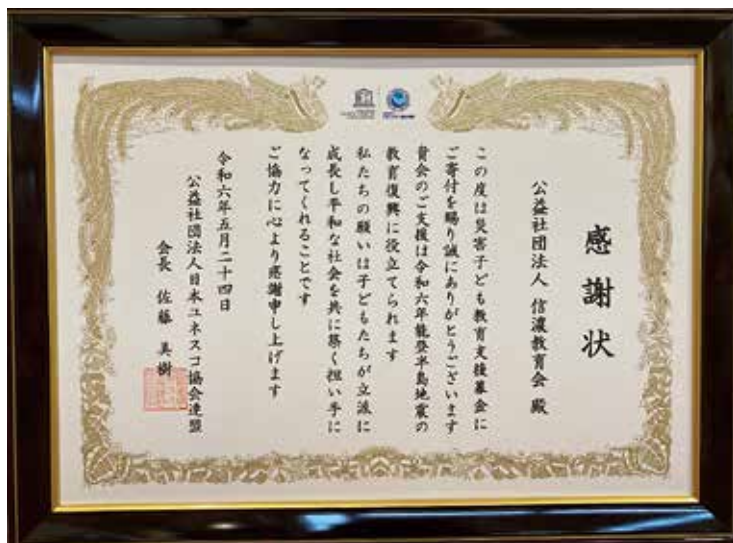 感謝状
公益社団法人 信濃教育会 殿
この度は災害子ども教育支援募金に
ご寄付を賜り誠にありがとうございます
貴会のご支援は令和六年能登半島地震の
教育復興に役立てられます
私たちの願いは子どもたちが立派に
成長し平和な社会を共に築く担い手に
なってくれることです
ご協力に心より感謝申し上げます
令和六年五月二十四日
公益社団法人日本ユネスコ協会連盟
会長 佐藤 美樹